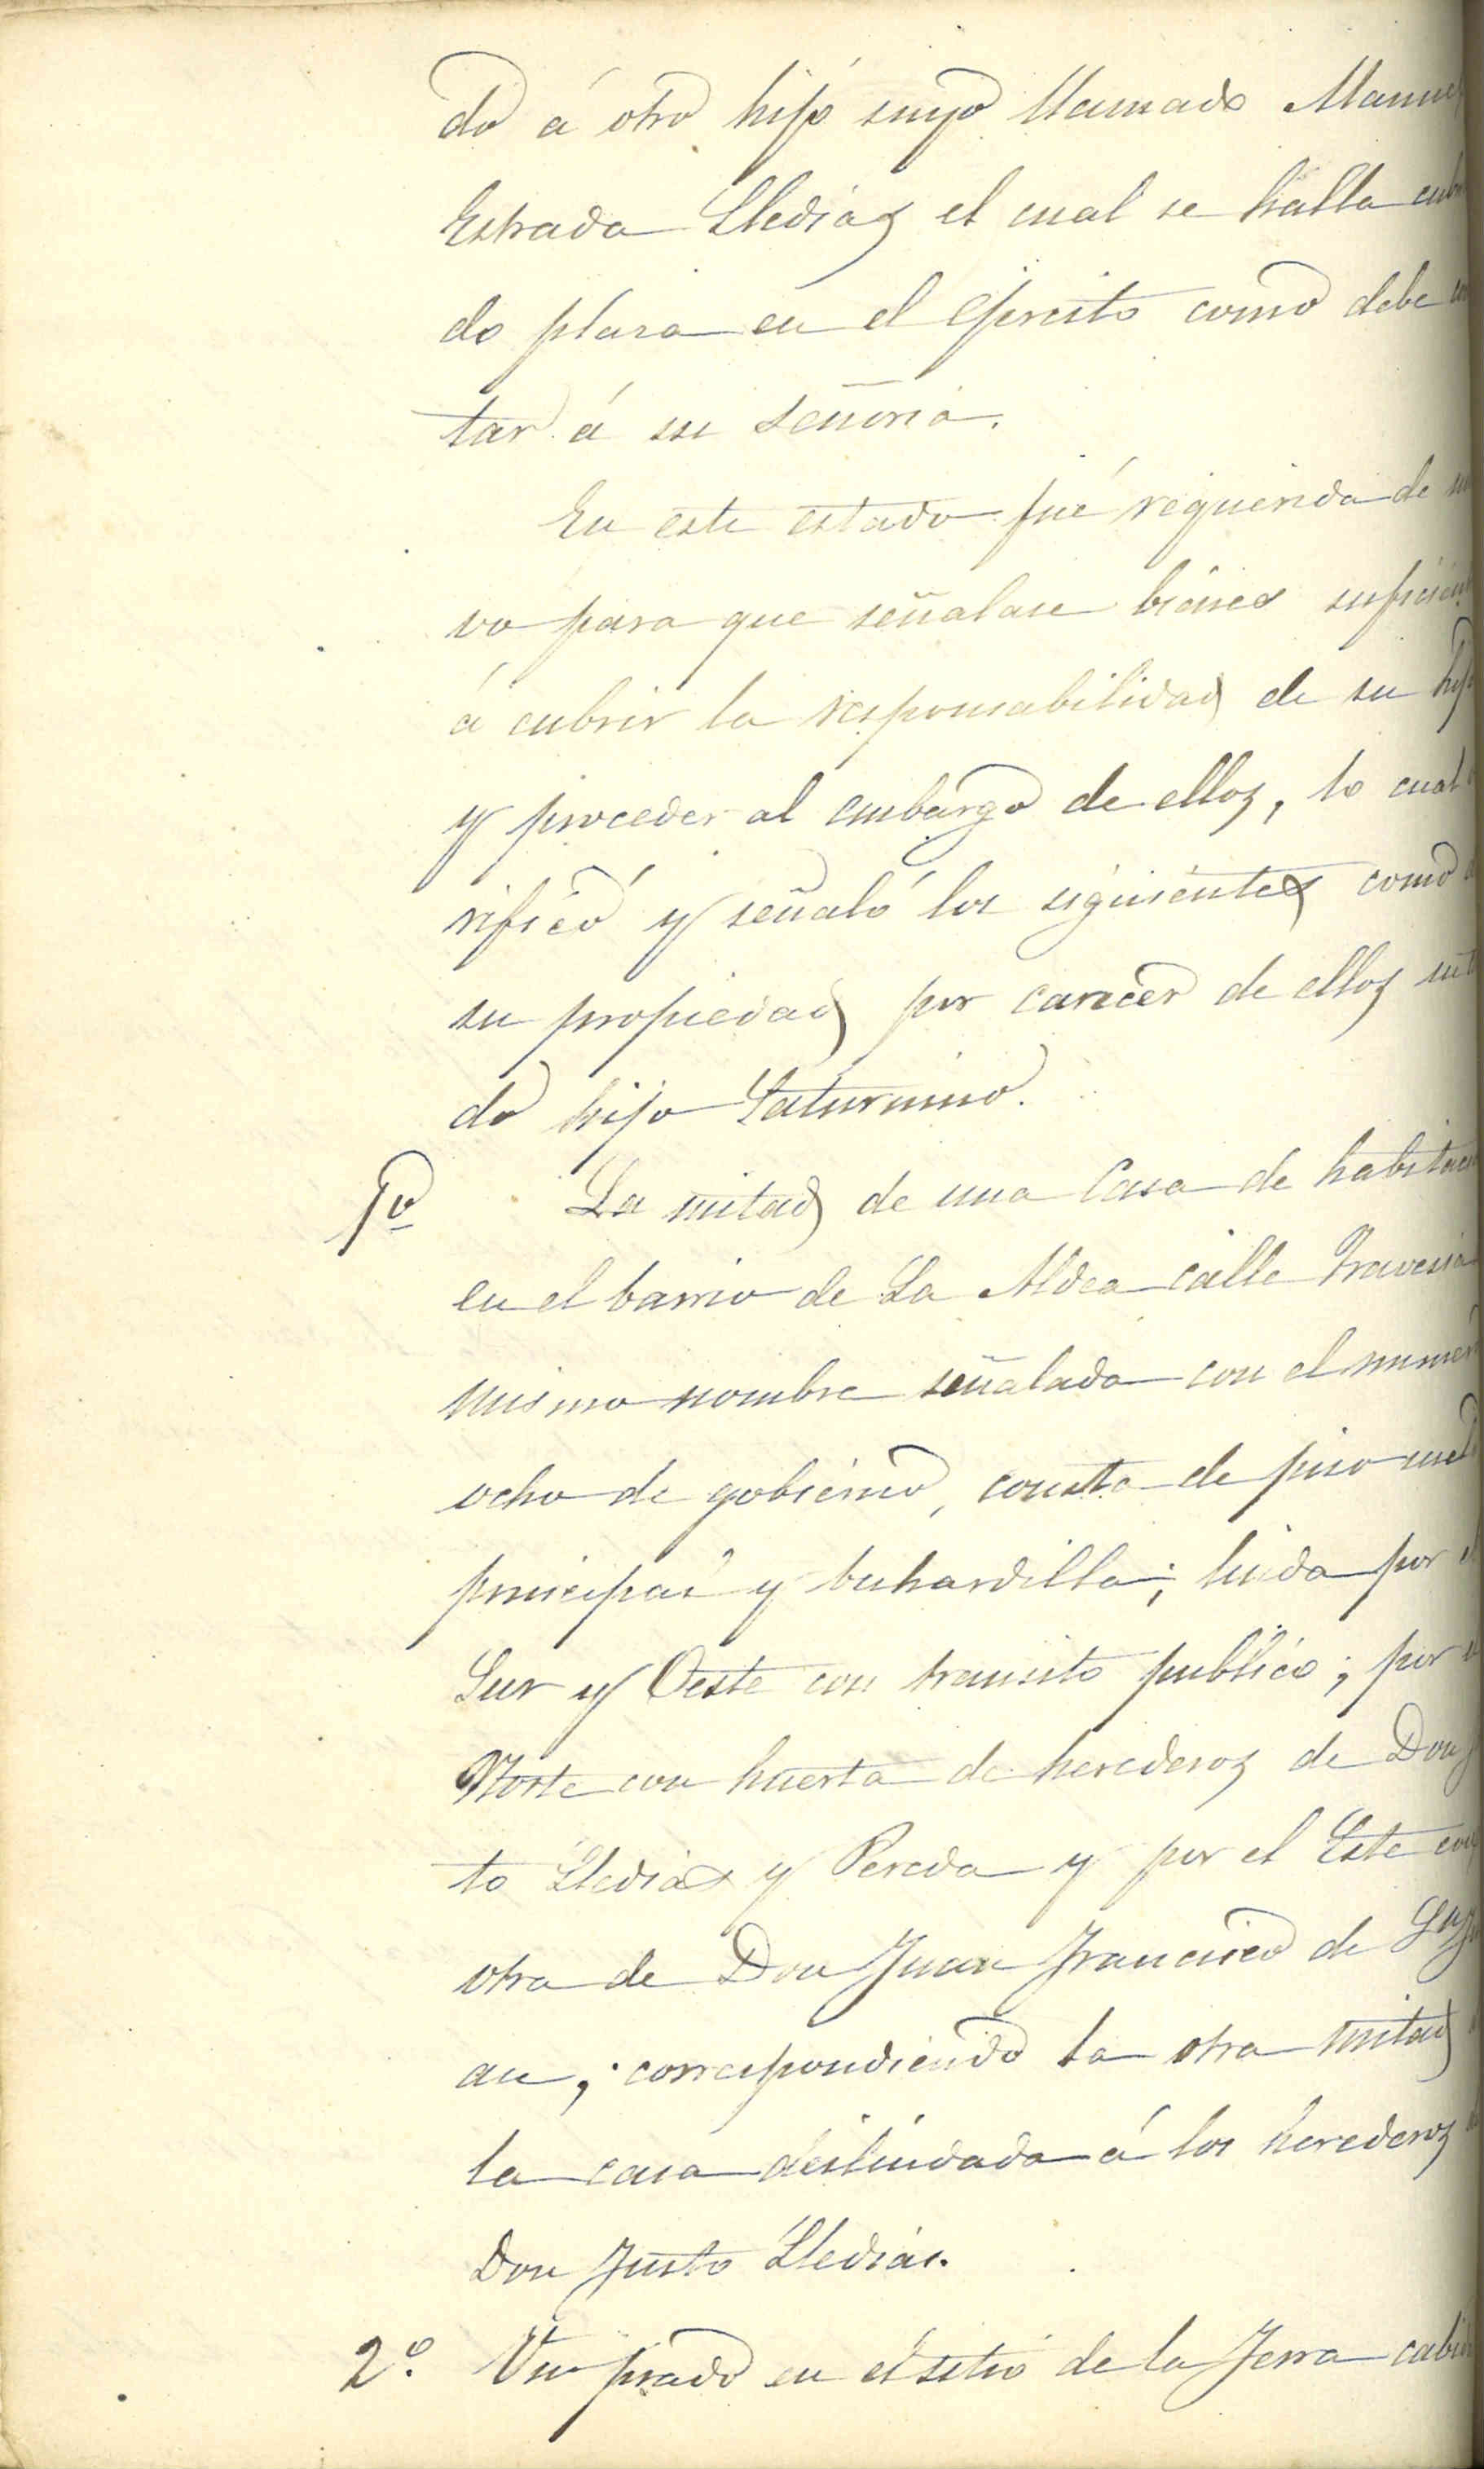 do á otro hijo suyo llamado Manuel
Estrada Lledias el cual se halla
do plaza en el Ejercito como debe
tar á su señoria.
En este estado fué requerida de
vo para que señalase bienes suficient
á cubrir la responsabilidad de su hijo
y proceder al embargo de ellos, lo cual
rificó y señaló los siguientes como
su propiedad por carecer de ellos
do hijo Saturnino.
1º La mitad de una Casa de habitaci
en el barrio de La Aldea calle Travesia
mismo nombre señalada con el numer
ocho de gobierno, consta de piso
principal y buhardilla; linda por el
Sur y Oeste con transito publico; por
Norte con huerta de herederos de Don
to Lledias y Pereda y por el Este con
otra de Don Juan Francisco de
an; correspondiendo la otra mitad
la casa deslindada á los herederos
Don Justo Lledias.
2º. Un prado en el sitio de la Jerra cabid